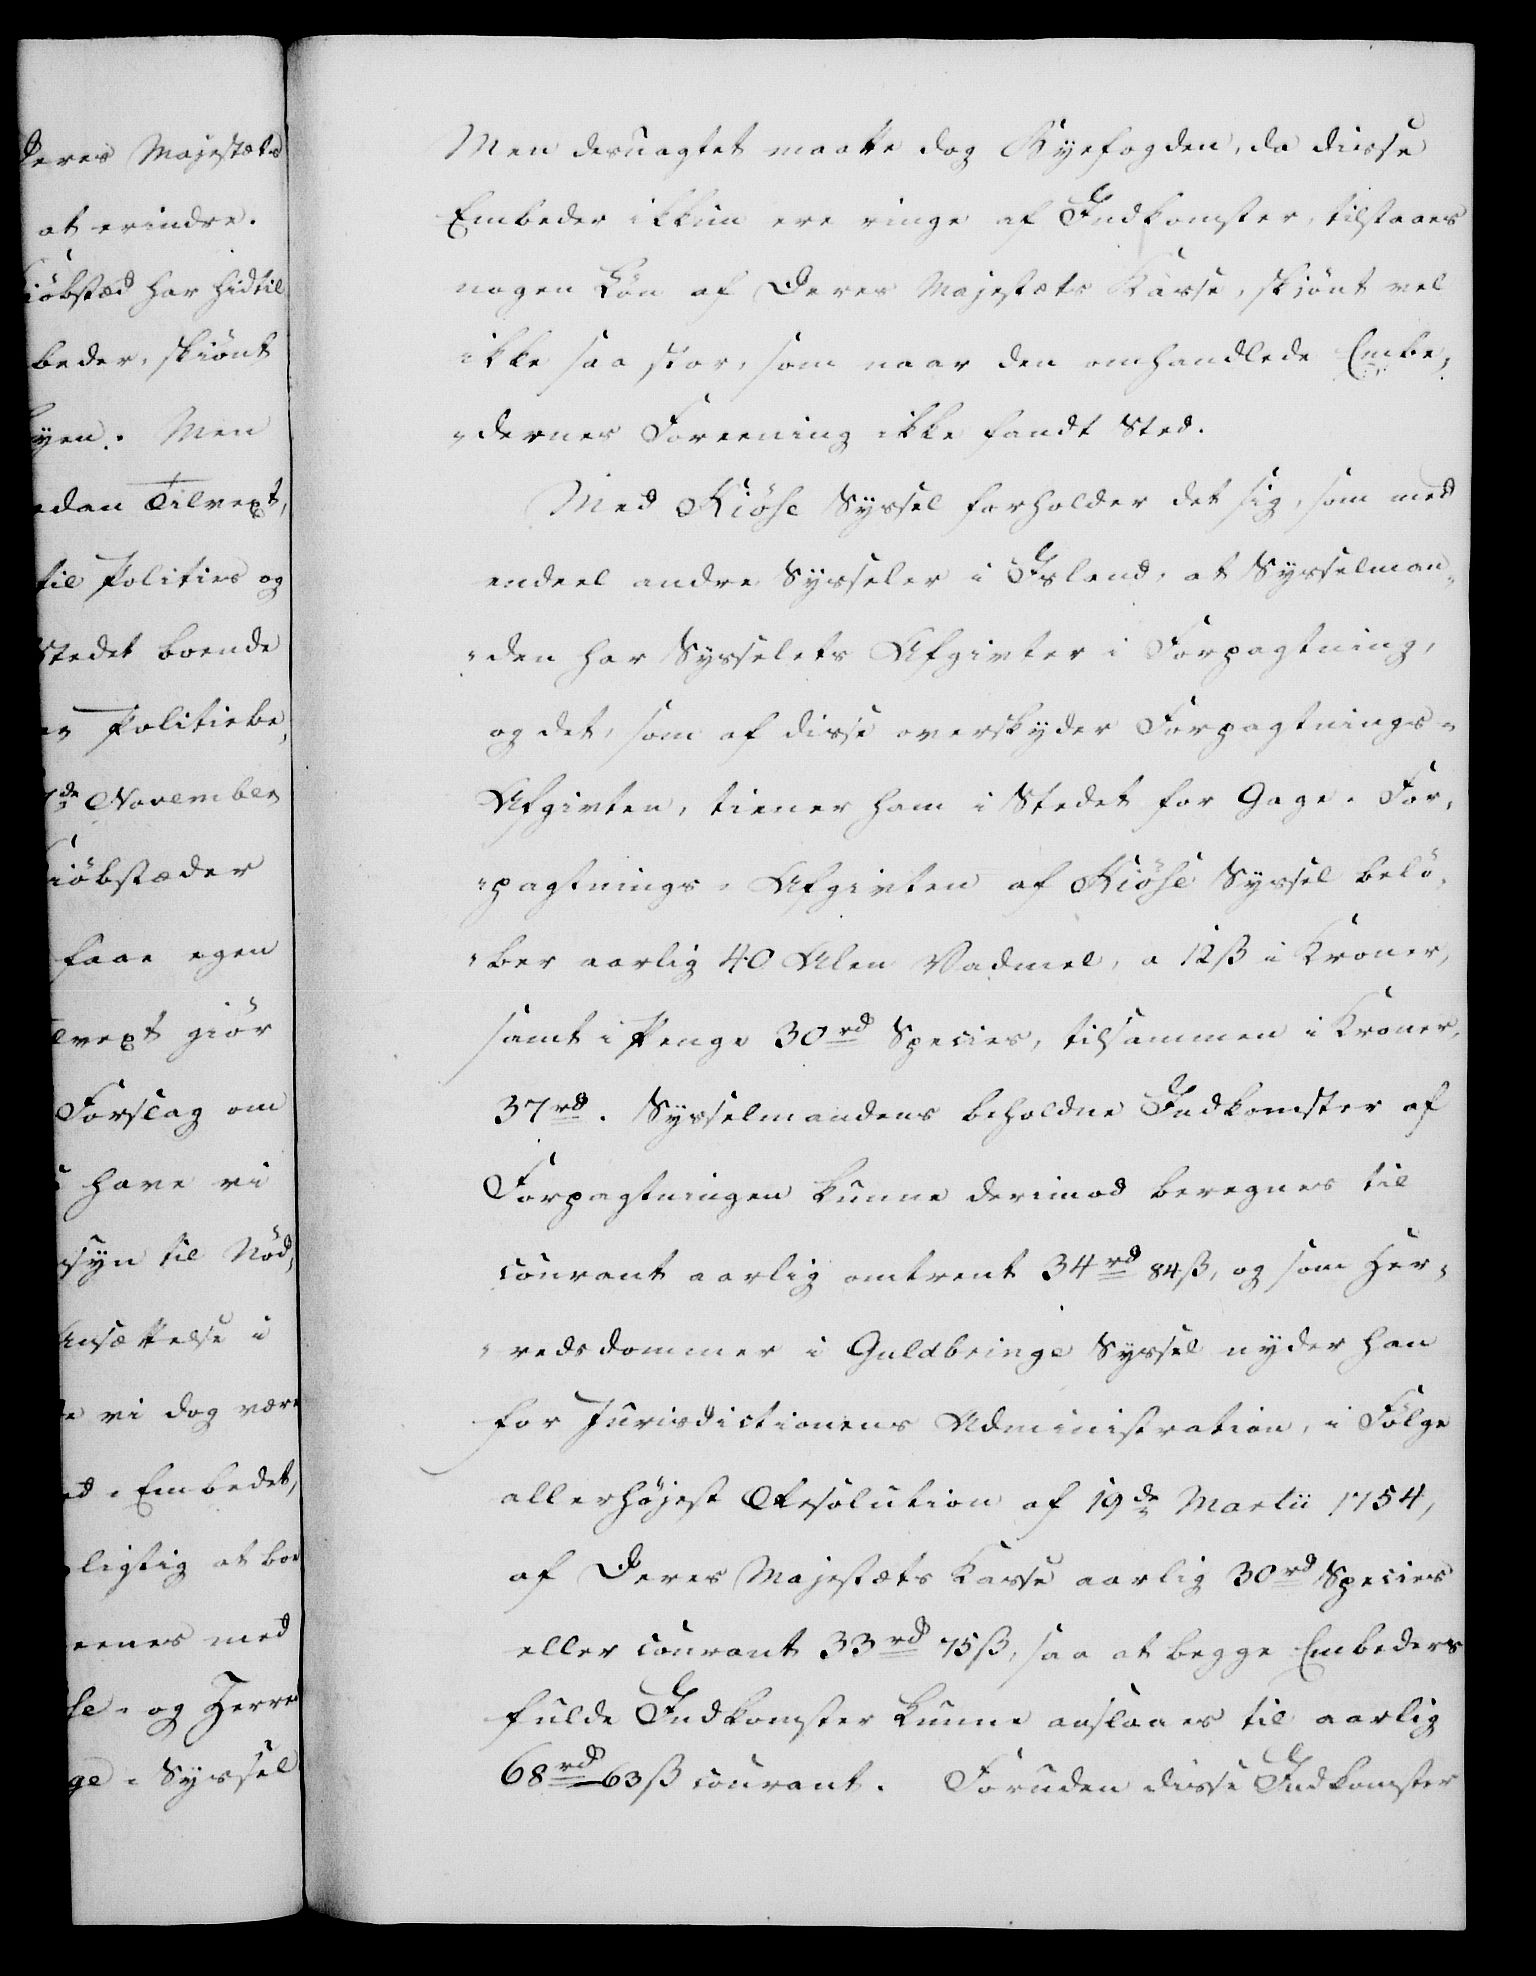 Deres Majestæts
at erindre.
iöbstæd har hidtil
beder, skiönt
yen. Men
edan Tilvext,
til Polities og
Stedet boende
en Politiebe,
7de November
iöbstæder
faae egen
lvext giör
Forslag om
have vi
syn til Nöd,
Ansættelse i
e vi dog være
ed Embedet,
ligtig at boe
eenes med
se- og Herre
ge- Syssel
Men desuagtet maatte dog Byefogden, da disse
Embeder ikkun ere ringe af Indkomster, tilstaaes
nogen Løn af Deres Majestæts Kasse, skjönt vel
ikke saa stor, som naar den omhandlede Embe,
dernes Foreening ikke fandt Sted.
Med Kiöse Syssel forholder det sig, som med
endeel andre Sysseler i Island, at Sysselman-
-den har Sysselets Afgivter i Forpagtning,
og det, som af disse overskyder Forpagtnings-
Afgivten, tiener ham i Stedet for Gage. For,
-pagtnings-Afgivten af Kiöse Syssel belö,
-ber aarlig 40 Alen Vadmel, a 12ß i Kroner,
samt i Penge 30rd Species, tilsammen i Kroner,
37rd. Sysselmandens beholdne Indkomster af
Forpagtningen kunne derimod beregnes til
courant aarlig omtrent 34rd 84ß, og som Her-
-redsdommer i Guldbringe Syssel nyder han
for Jurisdictionens Administration, i Fölge
allerhöjest Resolution af 19de Martii 1754,
af Deres Majestæts Kasse aarlig 30rd Species
eller courant 33rd 75ß, saa at begge Embeders
fulde Indkomster kunne anslaaes til aarlig
68rd 63ß courant. Foruden disse Indkomster